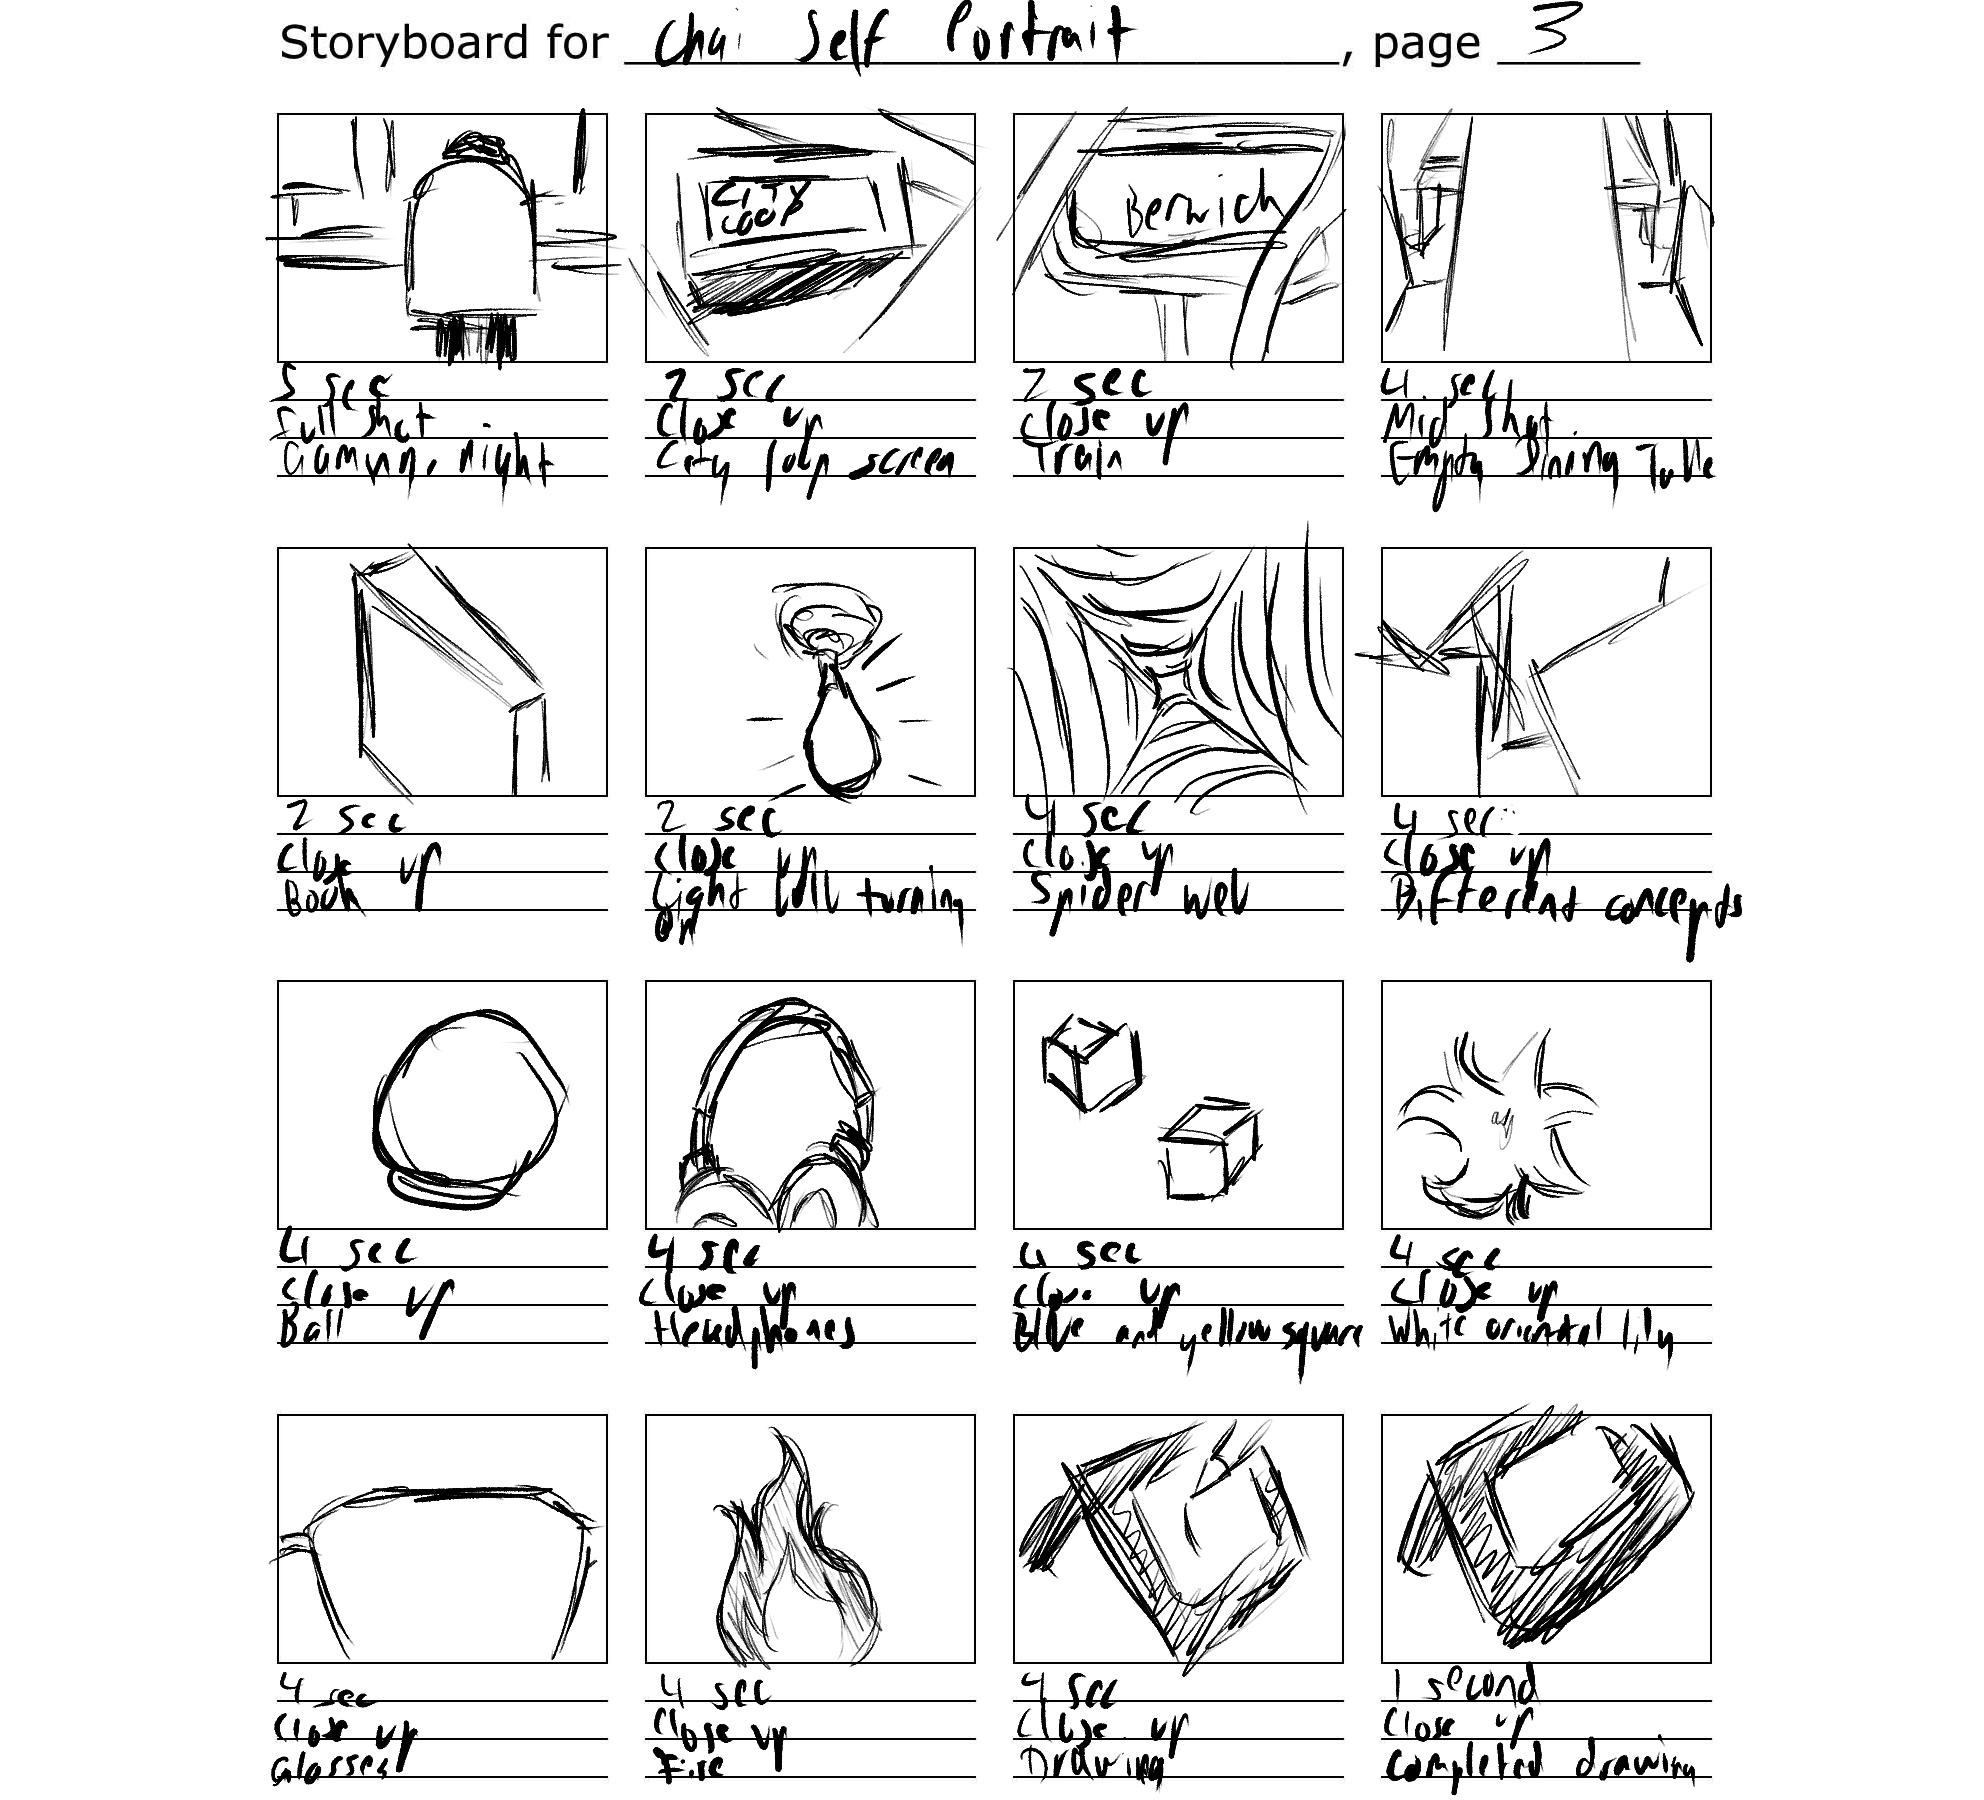 Storyboard for Chai Self Portrait, page 3
CITY
LOOP
Berwick
5 sec
Full shot
Gaming, night
2 sec
Close up
City loop screen
2 sec
Close up
Train
4 sec
Mid shot
Empty Dining Table
2 sec
Close up
Book
2 sec
Close up
Light bulb turning
on
4 sec
Close up
Spider web
4 sec
Close up
Different concepts
4 sec
Close up
Ball
4 sec
Close up
Headphones
4 sec
Close up
Blue and yellow square
4 sec
Close up
White oriental lily
4 sec
Close up
Glasses
4 sec
Close up
Fire
4 sec
Close up
Drawing
1 second
Close up
Completed drawing